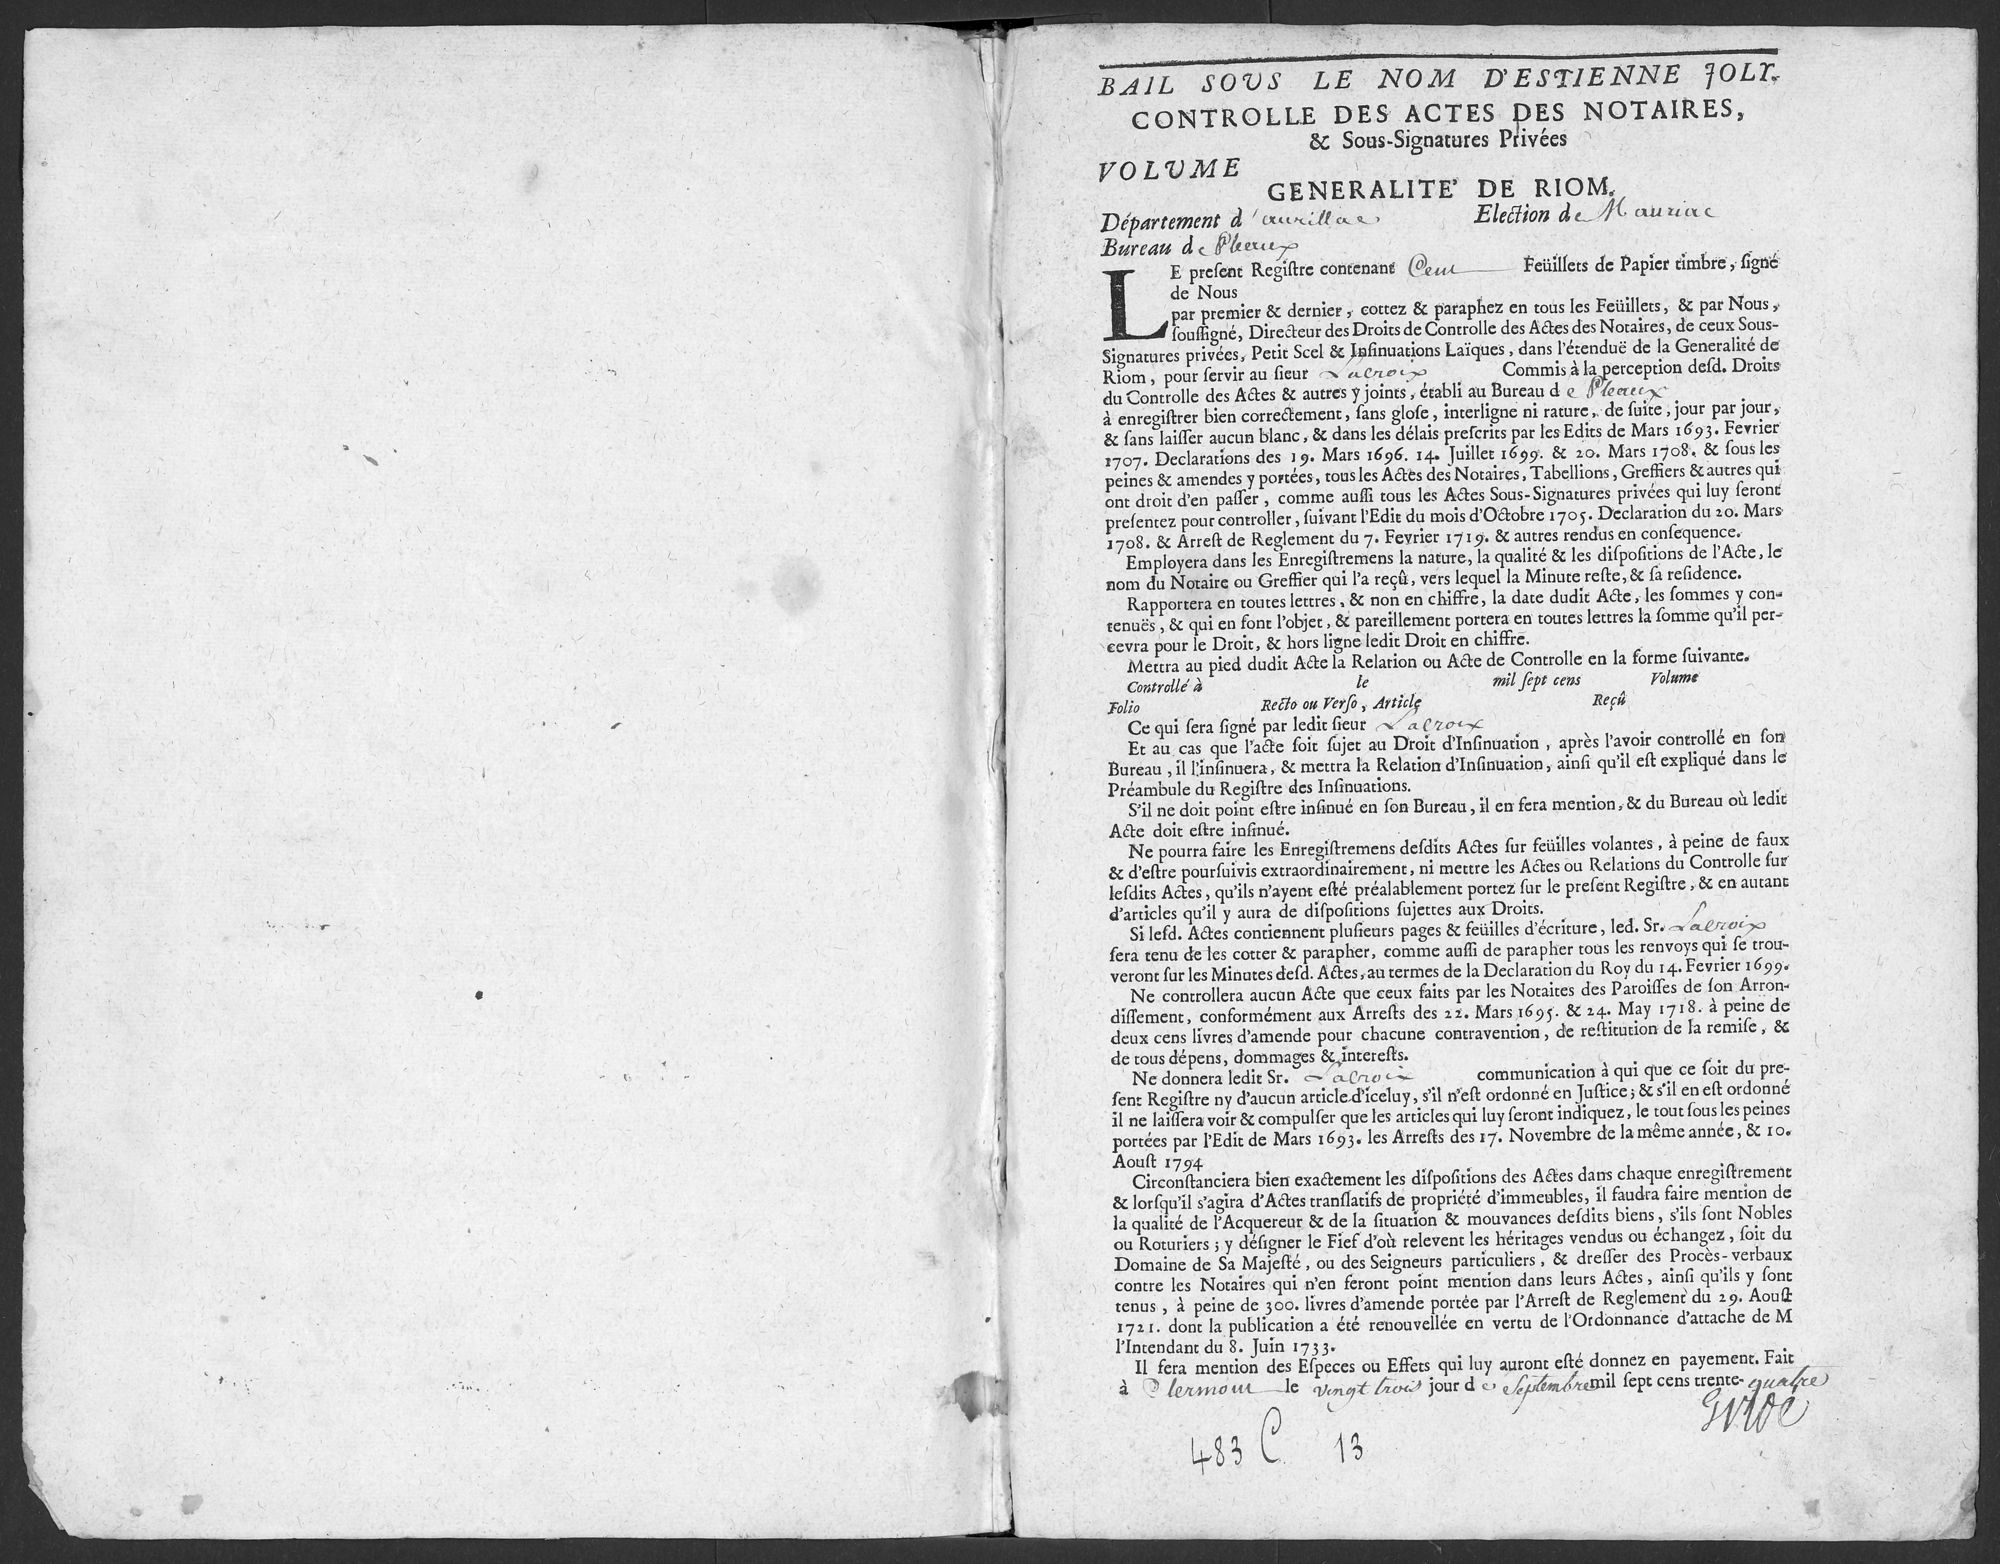 BAIL SOUS LE NOM D'ESTIENNE JOLY.
CONTROLLE DES ACTES DES NOTAIRES,
& Sous-Signatures Privées
VOLUME
GENERALITE' DE RIOM.
Département d'aurillac Election de Mauriac
Bureau de Pleaux
LE preſent Regiſtre contenant Cent Feüillets de Papier timbre, ſigné
de Nous
par premier & dernier, cottez & paraphez en tous les Feüillets, & par Nous,
ſouſſigné, Directeur des Droits de Controlle des Actes des Notaires, de ceux Sous-
Signatures privées, Petit Scel & Inſinuations Laïques, dans l'étenduë de la Generalité de
Riom, pour ſervir au ſieur Lacroix Commis à la perception deſd. Droits
du Controlle des Actes & autres y joints, établi au Bureau de Pleaux
à enregiſtrer bien correctement, ſans gloſe, interligne ni rature, de ſuite, jour par jour,
& ſans laiſſer aucun blanc, & dans les délais preſcrits par les Edits de Mars 1693. Fevrier
1707. Declarations des 19. Mars 1696. 14. Juillet 1699. & 20. Mars 1708. & ſous les
peines & amendes y portées, tous les Actes des Notaires, Tabellions, Greffiers & autres qui
ont droit d'en paſſer, comme auſſi tous les Actes Sous-Signatures privées qui luy ſeront
preſentez pour controller, ſuivant l'Edit du mois d'Octobre 1705. Declaration du 20. Mars
1708. & Arreſt de Reglement du 7. Fevrier 1719. & autres rendus en conſequence.
Employera dans les Enregiſtremens la nature, la qualité & les diſpoſitions de l'Acte, le
nom du Notaire ou Greffier qui l'a reçû, vers lequel la Minute reſte, & ſa reſidence.
Rapportera en toutes lettres, & non en chiffre, la date dudit Acte, les ſommes y con-
tenuës, & qui en ſont l'objet, & pareillement portera en toutes lettres la ſomme qu'il per-
cevra pour le Droit, & hors ligne ledit Droit en chiffre.
Mettra au pied dudit Acte la Relation ou Acte de Controlle en la forme ſuivante.
Controllé à le mil ſept cens Volume
Folio Recto ou Verſo, Article Reçû
Ce qui ſera ſigné par ledit ſieur Lacroix
Et au cas que l'acte ſoit ſujet au Droit d'Inſinuation, après l'avoir controllé en ſon
Bureau, il l'inſinuera, & mettra la Relation d'Inſinuation, ainſi qu'il eſt expliqué dans le
Préambule du Regiſtre des Inſinuations.
S'il ne doit point eſtre inſinué en ſon Bureau, il en fera mention, & du Bureau où ledit
Acte doit eſtre inſinué.
Ne pourra faire les Enregiſtremens deſdits Actes ſur feüilles volantes, à peine de faux
& d'eſtre pourſuivis extraordinairement, ni mettre les Actes ou Relations du Controlle ſur
leſdits Actes, qu'ils n'ayent eſté préalablement portez ſur le preſent Regiſtre, & en autant
d'articles qu'il y aura de diſpoſitions ſujettes aux Droits.
Si leſd. Actes contiennent pluſieurs pages & feüilles d'écriture, led. Sr. Lacroix
ſera tenu de les cotter & parapher, comme auſſi de parapher tous les renvoys qui ſe trou-
veront ſur les Minutes deſd. Actes, au termes de la Declaration du Roy du 14. Fevrier 1699.
Ne controllera aucun Acte que ceux faits par les Notaites des Paroiſſes de ſon Arron-
diſſement, conformément aux Arreſts des 22. Mars 1695. & 24. May 1718. à peine de
deux cens livres d'amende pour chacune contravention, de reſtitution de la remiſe, &
de tous dépens, dommages & intereſts.
Ne donnera ledit Sr. Lacroix communication à qui que ce ſoit du pre-
ſent Regiſtre ny d'aucun article d'iceluy, s'il n'eſt ordonné en Juſtice; & s'il en eſt ordonné
il ne laiſſera voir & compulſer que les articles qui luy ſeront indiquez, le tout ſous les peines
portées par l'Edit de Mars 1693. les Arreſts des 17. Novembre de la même année, & 10.
Aouſt 1794
Circonſtanciera bien exactement les diſpoſitions des Actes dans chaque enregiſtrement
& lorſqu'il s'agira d'Actes tranſlatifs de propriété d'immeubles, il faudra faire mention de
la qualité de l'Acquereur & de la ſituation & mouvances deſdits biens, s'ils ſont Nobles
ou Roturiers; y déſigner le Fief d'où relevent les héritages vendus ou échangez, ſoit du
Domaine de Sa Majeſté, ou des Seigneurs particuliers, & dreſſer des Procès-verbaux
contre les Notaires qui n'en feront point mention dans leurs Actes, ainſi qu'ils y ſont
tenus, à peine de 300. livres d'amende portée par l'Arreſt de Reglement du 29. Aouſt
1721. dont la publication a été renouvellée en vertu de l'Ordonnance d'attache de M
l'Intendant du 8. Juin 1733.
Il fera mention des Eſpeces ou Effets qui luy auront eſté donnez en payement. Fait
à Clermont le vingt trois jour de Septembre mil ſept cens trente-quatre
483 C 13